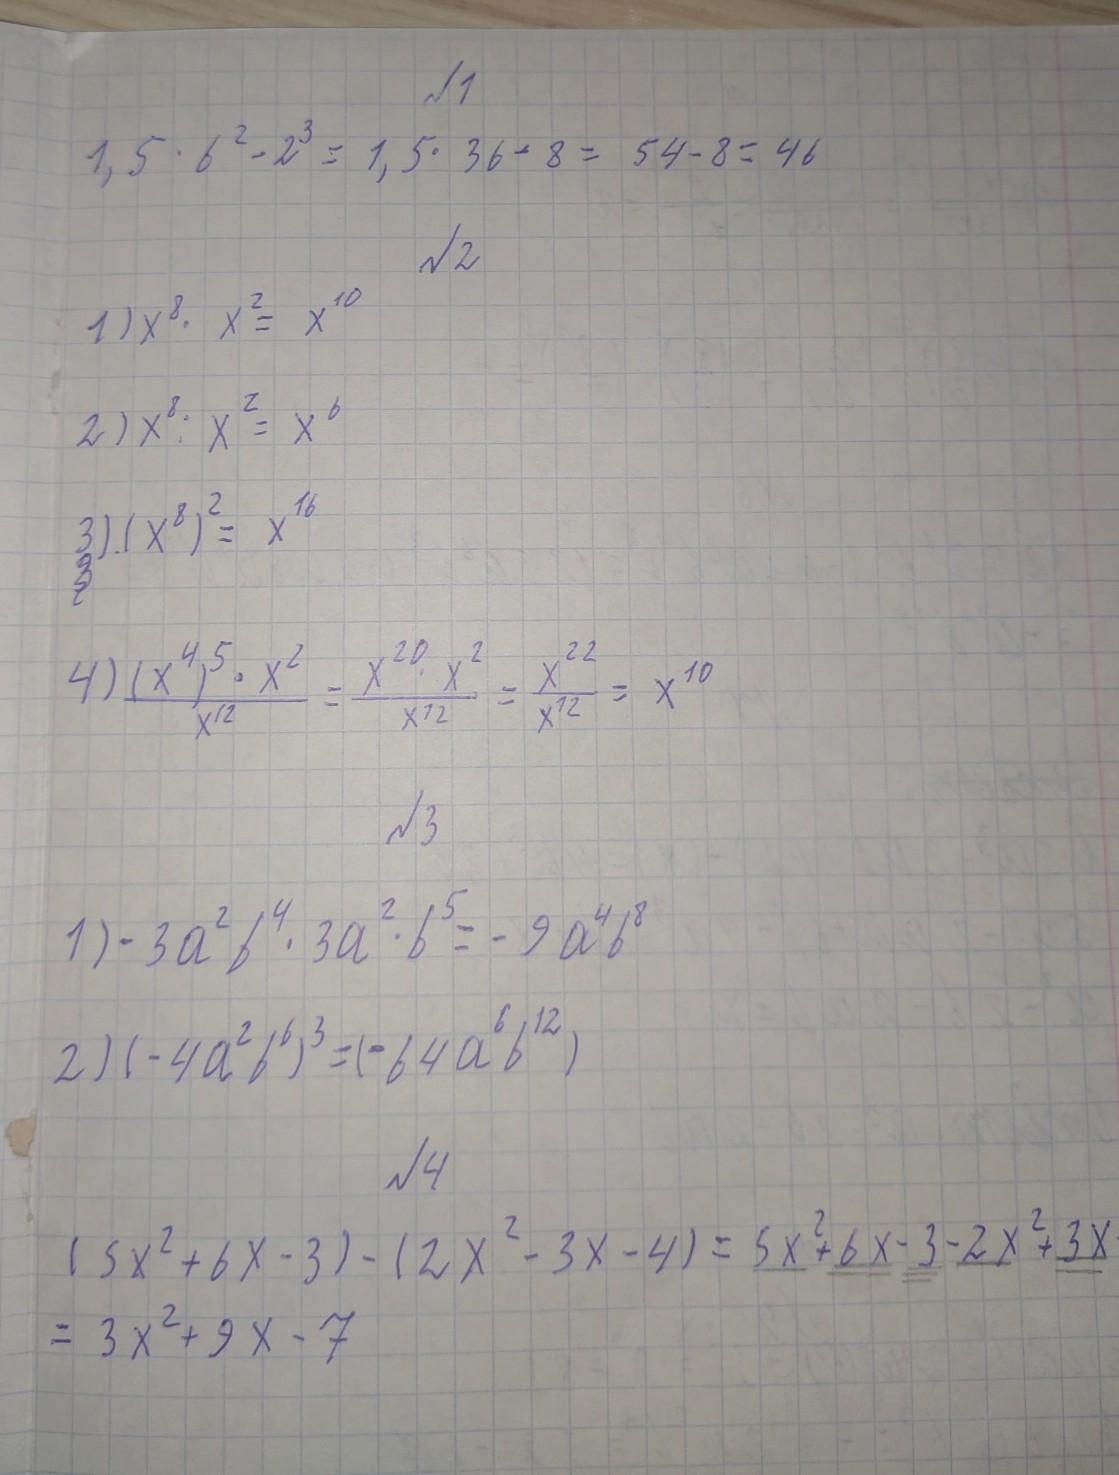 №1
1,5 · 6² - 2³ = 1,5 · 36 - 8 = 54 - 8 = 46
№2
1) x⁸ · x² = x¹⁰
2) x⁸ : x² = x⁶
3) (x⁸)² = x¹⁶
4) (x⁴)⁵ · x² / x¹² = x²⁰ · x² / x¹² = x²² / x¹² = x¹⁰
№3
1) - 3a²b⁴ · 3a² · b⁵ = - 9a⁴b⁸
2) (-4a²b⁶)³ = (-64a⁶b¹²)
№4
(5x² + 6x - 3) - (2x² - 3x - 4) = 5x² + 6x - 3 - 2x² + 3x
= 3x² + 9x - 7